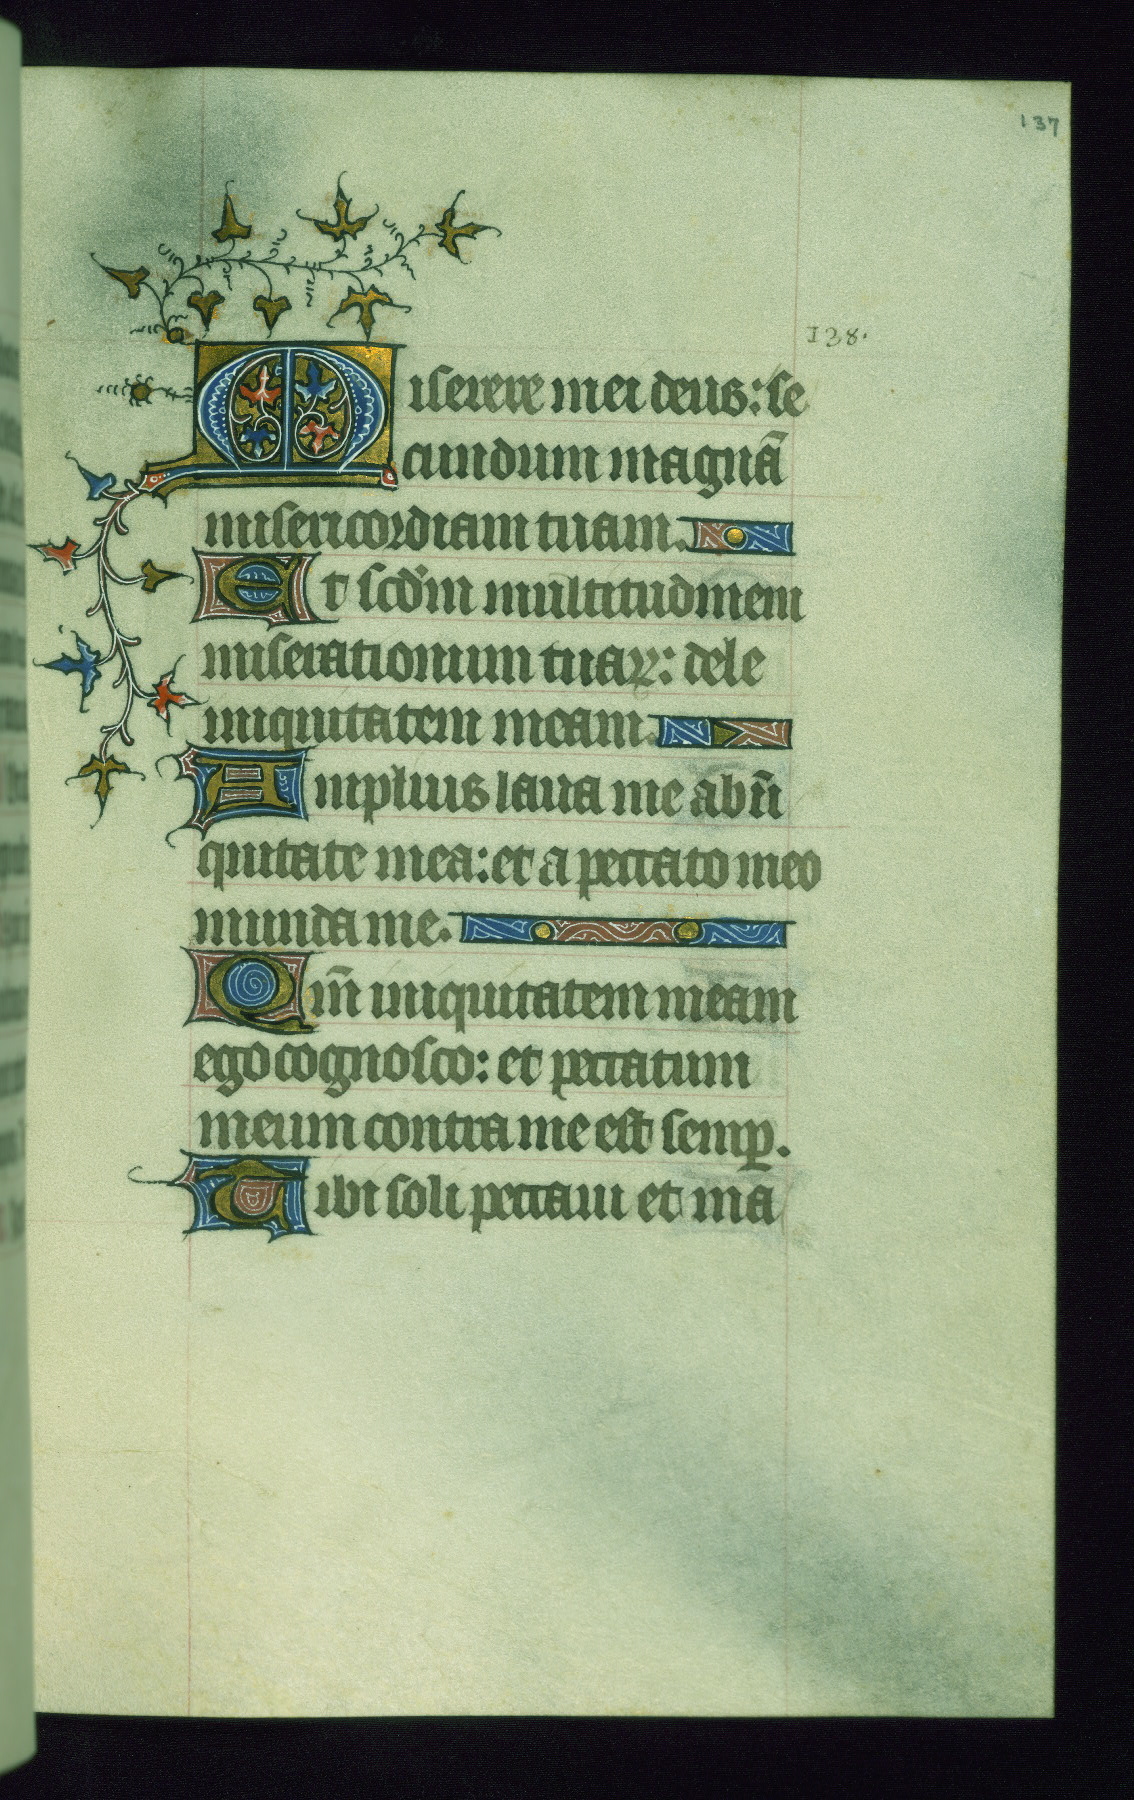 137
138.
Miserere mei deus: se
cundum magnā
misericordiam tuam.
Et scd̄m multitudinem
miserationum tuaꝝ: dele
iniquitatem meam.
Amplius laua me ab īi
quitate mea: et a peccato meo
munda me.
Qm̄ iniquitatem meam
ego cognosco: et peccatum
meum contra me est semꝑ.
Tibi soli peccaui et ma